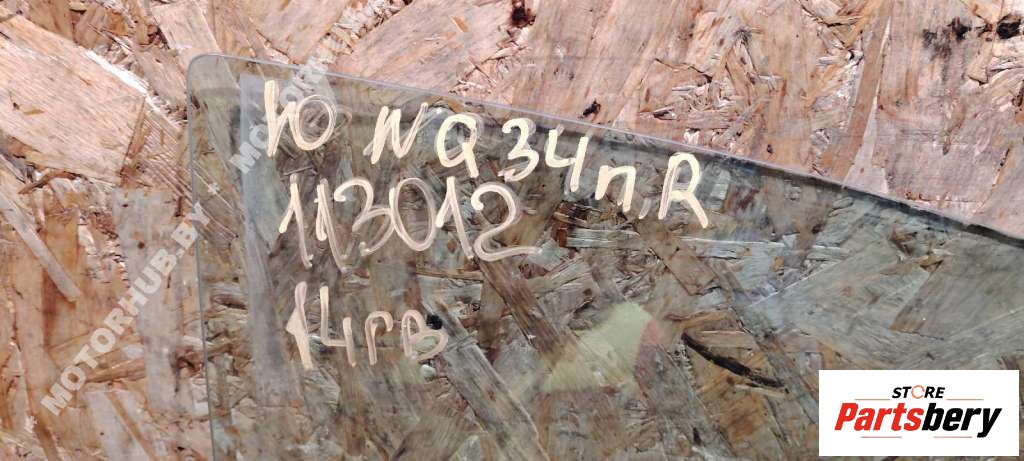 Ю NQ34п.R
113012
14ГВ
MOTORHUB.BY - MOTORHUB.BY
STORE
Partsbery